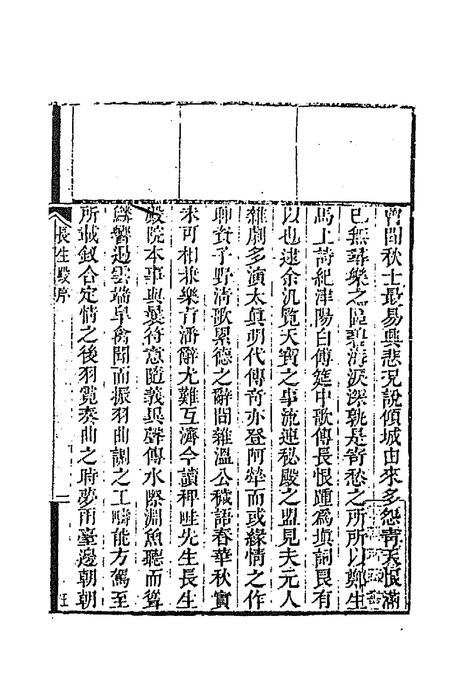 曾聞秋士最易興悲況說傾城由來多怨青天恨滿
已無尋樂之區碧海淚深孰是寄愁之所所以鄭生
馬上詩紀津陽白傅筵中歌傳長恨踵為填詞良有
以也逮余汎覽天寶之事流連秘殿之盟見夫元人
雜劇多演太真明代傳奇亦登阿犖而或緣情之作
聊資子野清歌累德之辭間雜溫公穢語春華秋實
未可相兼樂旨潘辭尤難互濟今讀稗畦先生長生
殿院本事與曩符意隨義異聲傳水際淵魚聽而聳
鱗響遏雲端皐禽聞而振羽曲調之工疇能方駕至
所載釵合定情之後羽霓奏曲之時夢雨臺邊朝朝
長生殿序
汪